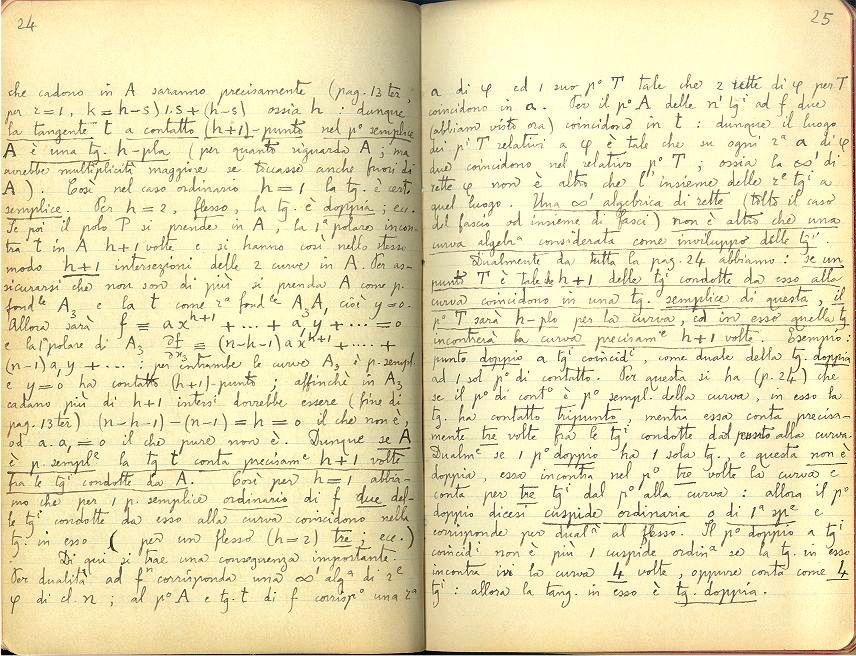 24
che cadono in A saranno precisamente (pag. 13 ter,
per r=1, k=h-s) 1.s+(h-s) ossia h : dunque
la tangente t a contatto (h+1)-punto nel p° semplice
A è una tg. h-pla (per quanto riguarda A ; ma
avrebbe multiplicità maggiore se toccasse anche fuori di
A). Così nel caso ordinario h=1 la tg. è certo
semplice. Per h=2, flesso, la tg. è doppia ; ecc.
Se poi il polo P si prende in A, la 1ª polare incon-
tra t in A h+1 volte e si hanno così nello stesso
modo h+1 intersezioni delle 2 curve in A. Per as-
sicurarsi che non son di più si prenda A come p.
fondle A3 e la t come rª fondle A3A1 cioè y=0.
Allora sarà f ≡ a x^{h+1} + ... + a1 y + ... = 0
e la 1ª polare di A3 ∂f/∂x3 ≡ (n-h-1) a x^{h+1} + ... +
(n-1) a1 y + ... : per entrambe le curve A3 è p. sempl.
e y=0 ha contatto (h+1)-punto ; affinchè in A3
cadano più di h+1 intersi dovrebbe essere (fine di
pag. 13 ter) (n-h-1)-(n-1)=h=0 il che non è,
od a.a1=0 il che pure non è. Dunque se A
è p. semple la tg t conta precisame h+1 volte
fra le tgi condotte da A. Così per h=1 abbia-
mo che per 1 p. semplice ordinario di f due del-
le tgi condotte da esso alla curva coincidono nella
tg. in esso (per un flesso (h=2) tre ; ecc.)
Di qui si trae una conseguenza importante.
Per dualità ad fn corrisponda una ∞ alga di re
φ di cl n ; al p° A e tg. t di f corrispo una ra
25
a di φ ed 1 suo p° T tale che 2 rette di φ per T
coincidono in a. Per il p° A delle n' tgi ad f due
(abbiam visto ora) coincidono in t : dunque il luogo
dei pi T relativi a φ è tale che su ogni ra a di φ
due coincidono nel relativo p° T ; ossia la ∞¹ di
rette φ non è altro che l'insieme delle re tgi a
quel luogo. Una ∞¹ algebrica di rette (tolto il caso
del fascio od insieme di fasci) non è altro che una
curva algebra considerata come inviluppo delle tgi.
Dualmente da tutta la pag. 24 abbiamo : se un
punto T è tale che h+1 delle tgi condotte da esso alla
curva coincidono in una tg. semplice di questa, il
p° T sarà h-plo per la curva, ed in esso quella tg.
incontrerà la curva precisame h+1 volte. Esempio :
punto doppio a tgi coincidi, come duale della tg. doppia
ad 1 sol p° di contatto. Per questa si ha (p. 24) che
se il p° di conto è p° sempl. della curva, in esso la
tg. ha contatto tripunto, mentre essa conta precisa-
mente tre volte fra le tgi condotte dal punto alla curva.
Dualme se 1 p° doppio ha 1 sola tg., e questa non è
doppia, essa incontra nel p° tre volte la curva e
conta per tre tgi dal p° alla curva : allora il p°
doppio dicesi cuspide ordinaria o di 1ª spe e
corrisponde per duala al flesso. Il p° doppio a tgi
coincidi non è più 1 cuspide ordina se la tg. in esso
incontra ivi la curva 4 volte, oppure conta come 4
tgi : allora la tang. in esso è tg. doppia.